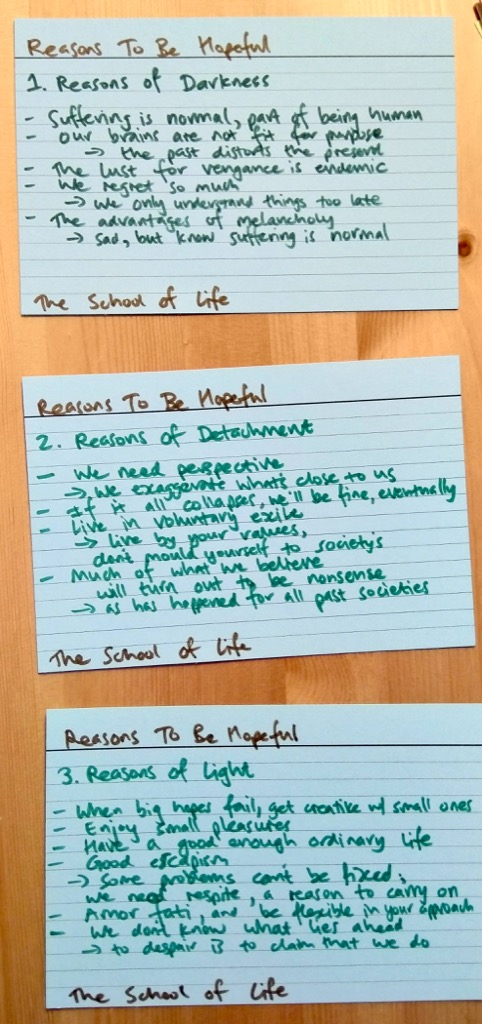 Reasons To Be Hopeful
1. Reasons of Darkness
- Suffering is normal, part of being human
- Our brains are not fit for purpose
→ the past distorts the present
- The lust for vengance is endemic
- We regret so much
→ we only understand things too late
- The advantages of melancholy
→ sad, but know suffering is normal
The School of Life
Reasons To Be Hopeful
2. Reasons of Detachment
- We need perspective
→ we exaggerate what's close to us
- If it all collapses, we'll be fine, eventually
- Live in voluntary exile
→ live by your values,
don't mould yourself to society's
- Much of what we believe
will turn out to be nonsense
→ as has happened for all past societies
The School of Life
Reasons To Be Hopeful
3. Reasons of Light
- When big hopes fail, get creative w/ small ones
- Enjoy small pleasures
- Have a good enough ordinary life
- Good escapism
→ Some problems can't be fixed;
we need respite, a reason to carry on
- Amor fati, and be flexible in your approach
- We don't know what lies ahead
→ to despair is to claim that we do
The School of Life